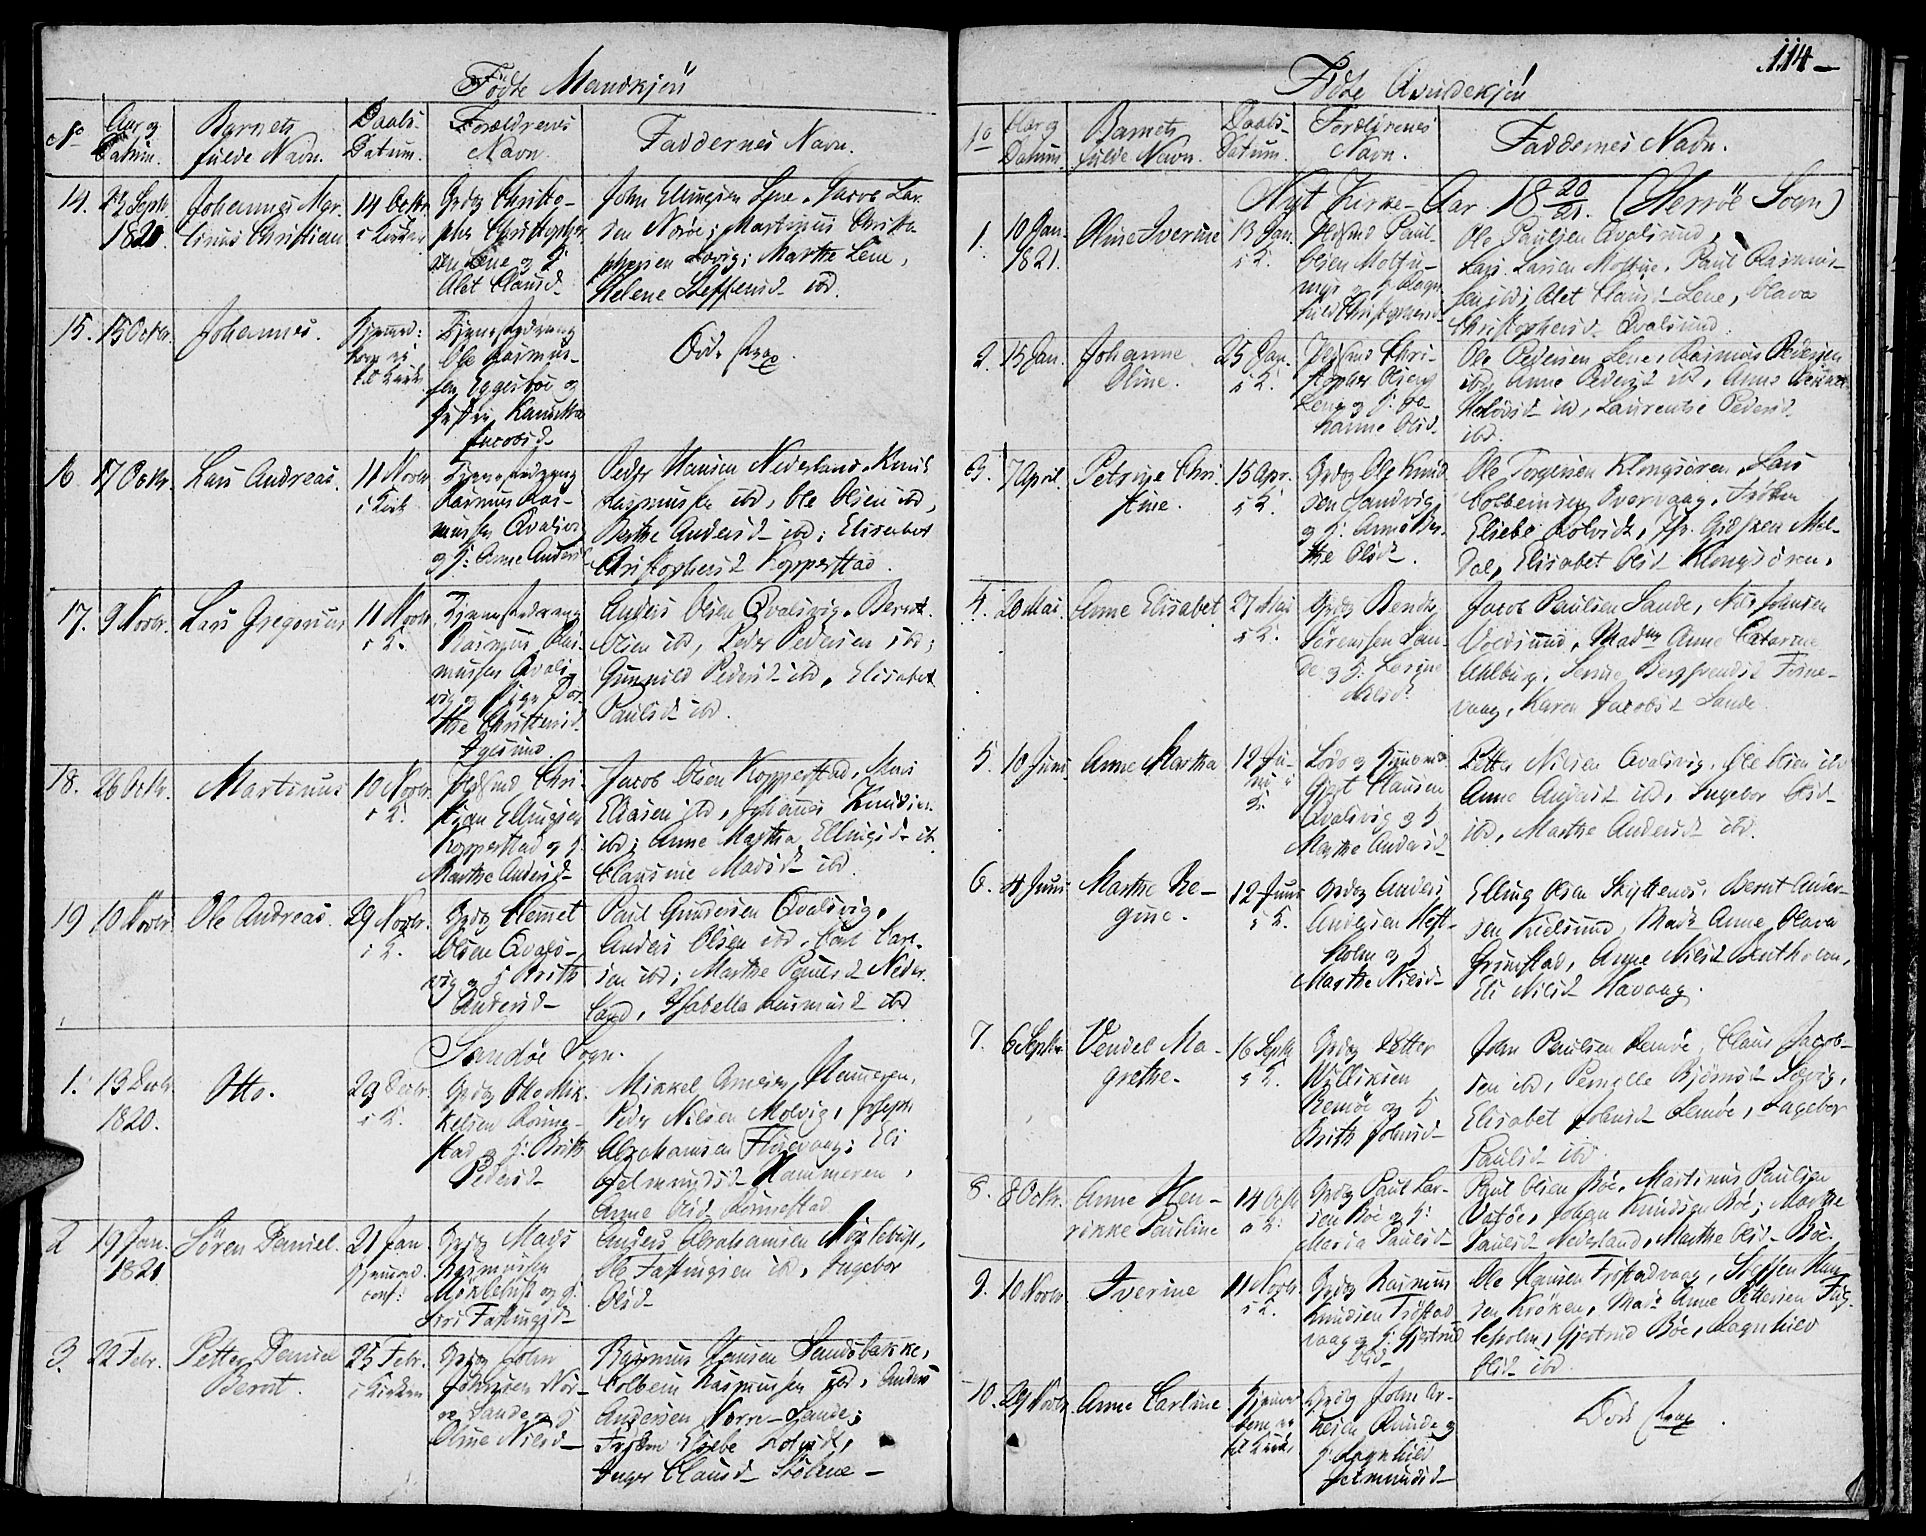 114-
Födte Mandkjön
No
Aar og Datum.
Barnets fulde Navn.
Daabs-Datum.
Forældrenes Navn.
Faddernes Navn.
14.
23 Septr. 1820
Johannes Mar-
tinus Christian
14 Octbr.
i Kirken
Grdg Christo-
pher Christopher-
sen Lene og H:
Alet Clausd-
John Ellingsen Lene, Jacob Lar-
sen Norøe; Martinus Christo-
phersen Lovig; Marthe Lene,
Helene Steffensd ibd.
15.
15 Octbr.
Johannes.
Hjemmed:
kom ei
til Kirke
Ole Rasmus-
sen Eggesbøe og
Jacobsd-
Døde strax.
16
17 Octbr.
Lars Andreas.
11 Novbr.
i Kirk
Rasmus Ras-
mussen Qvalsvig
og H: Anne Andersd
Peder Hansen Nederland, Knud
Rasmussen ibd, Ole Olsen ibd,
Berthe Andersd- ibd; Elisabet
Christophersd Kopperstad.
17.
9 Novbr.
Lars Gregorius
11 Novbr.
i K.
Rasmus Ras-
mussen Qvals-
vig og Pige Dor-
the Christensd
Anders Olsen Qvalsvig, Bernt
Olsen ibd, Peder Pedersen ibd;
Gunnild Pedersd ibd, Elisabet
Paulsd ibd.
18.
26 Octbr.
Martinus
10 Novbr.
i K.
Huusmd Chri-
stian Ellingsen
Kopperstad og H.
Marthe Andersd-
Jacob Olsen Kopperstad, Mads
Eliasen ibd, Johannes Knudsen
ibd; Anne Martha Ellingsd- ib
Clausine Madsd ibd.
19
10 Novbr.
Ole Andreas.
29 Novbr.
i K.
Grdg Clemet
Olsen Qvals-
vig og H Brithe
Andersd-
Paul Gundersen Qvalsvig,
Anders Olsen ibd, Carl Carl-
sen ibd; Marthe Paulsd Neder-
land, Isabella Rasmusd ibd
Sandøe Sogn.
1.
13 Decbr.
1820.
Otto.
29 Decbr.
i K.
Grdg Otto Mik-
kelsen Rønne-
stad og H: Brithe
Pedersd-
Mikkel Hammeren,
Peder Nielsen Molvig, Joseph
Abrahamsen Finevaag; Eli
Helmundsd Hammeren,
Anne Olsd Rønnestad
2
19 Jan.
1821.
Søren Daniel.
21 Jan
hjemmed.
conf:
Grdg Mads
Rasmussen
Møklebust og H.
Siri Fastingsd-
Anders Abrahamsen Møklebust,
Ole Fastingsen ibd, Ingebor
Olsd-
3.
22 Febr.
Petter Daniel
Bernt.
25 Febr.
i Kirken
Grdg John
Johnsen Nør-
re Sande og H
Oline Nielsd-
Rasmus Hansen Sandsbakke,
Kolbein Rasmussen ibd, Anders
Andersen Nørre-Sande;
Frøken Elsebe
Inger Clausd Støbene-
Födte Qvindekjön
Aar og Datum
Barnets fulde Navn.
Daabs-Datum.
Forældrenes Navn.
Faddernes Navn.
Nyt Kirke-Aar 18 20/21. (Herrøe Sogn)
1.
10 Jan.
1821.
Oline Iverine
13 Jan.
i K.
Huusmd Paul
Olsen Moltu-
myr og H. Ragn-
hild Christophersd-
Ole Paulsen Qvalsund,
Lars Larsen Moltue, Paul Rasmus-
sen ibd; Alet Clausd- Lene, Olava
Christophersd- Qvalsund.
2.
15 Jan.
Johanne
Oline.
25 Jan.
i K.
Huusmd Chri-
stopher Olsen
Lene og H: Jo-
hanne Olsd-
Ole Pedersen Lene, Rasmus Pedersen
ibd, Anne Pedersd ibd, Anne
ibd, Laurentse Pedersd
ibd.
3.
7 April.
Petrine Chri-
stine.
15 Apr.
i K.
Grdg Ole Knud-
sen Sandvig
og H: Anne Ber-
the Olsd-
Ole Torgersen Klongsøren, Lars
Colbeinsen Overvaag, Frøken
Elsebe, Jfr. Mel-
dal, Elisabet Olsd Klongsøren.
4.
20 Mai.
Anne Elisabet
27 Mai
i K.
Grdg Bendix
Sørensen San-
de og H: Lorine
Nielsd
Jacob Paulsen Sande, Nils Johnsen
Voldsund, Madme Anne Catarine
Aalburg, Bergsvendsd Fine-
vaag, Karen Jacobsd Sande.
5.
10 Juni
Anne Martha
12 Ju-
ni i
K.
Gjert Clausen
Qvalsvig og H
Marthe Andersd-
Petter Nilsen Qvalsvig, Ole Olsen ibd
Anne Andersd ibd, Ingebor Olsd-
ibd, Marthe Andersd ibd.
6.
4 Juni
Marthe Re-
gine.
12 Juni
i K.
Grdg Anders
Andersen Heste-
holm og H
Marthe Nielsd-
Elling Olsen Skytenes, Bernt Ander-
sen Kielsund, Made Anne Olava
Grimstad, Anne Nilsd
Eli Nilsd Havaag.
7.
6 Septbr.
Vendel Ma-
grethe.
16 Septbr
i K.
Grdg Petter
Williksen
Remøe og H
Brithe Johnsd-
John Paulsen Remøe, Claus Jacob-
sen ibd, Pernelle Bjørnsd
Elisabet Johnsd Remøe, Ingebor
Paulsd ibd.
8.
8 Octbr.
Anne Hen-
rikke Pauline
14 Octbr
i K.
Grdg Paul Lar-
sen Bøe og H:
Maria Paulsd-
Paul Olsen Bøe, Martinus Paulsen
Vatøe, Johan Knudsen Bøe; Marthe
Paulsd Nederland, Marthe Olsd- Bøe.
9.
10 Novbr.
Iverine
11 Novbr.
i K.
Grdg Rasmus
Knudsen Frøstad-
vaag og H: Gjertrud
Olsd-
Ole Hansen Frøstadvaag, Steffen Han-
sen Krøken, Made Anne Pettersen Fug-
leholm, Gjertrud Bøe, Ragnhild
Olsd ibd.
10.
29 Novbr.
Anne Carline
Hjemme-
kom ei
til Kirke
Grdg John Ar-
nesen Runde og
H: Ragnhild
Helmundsd-
Døde strax.